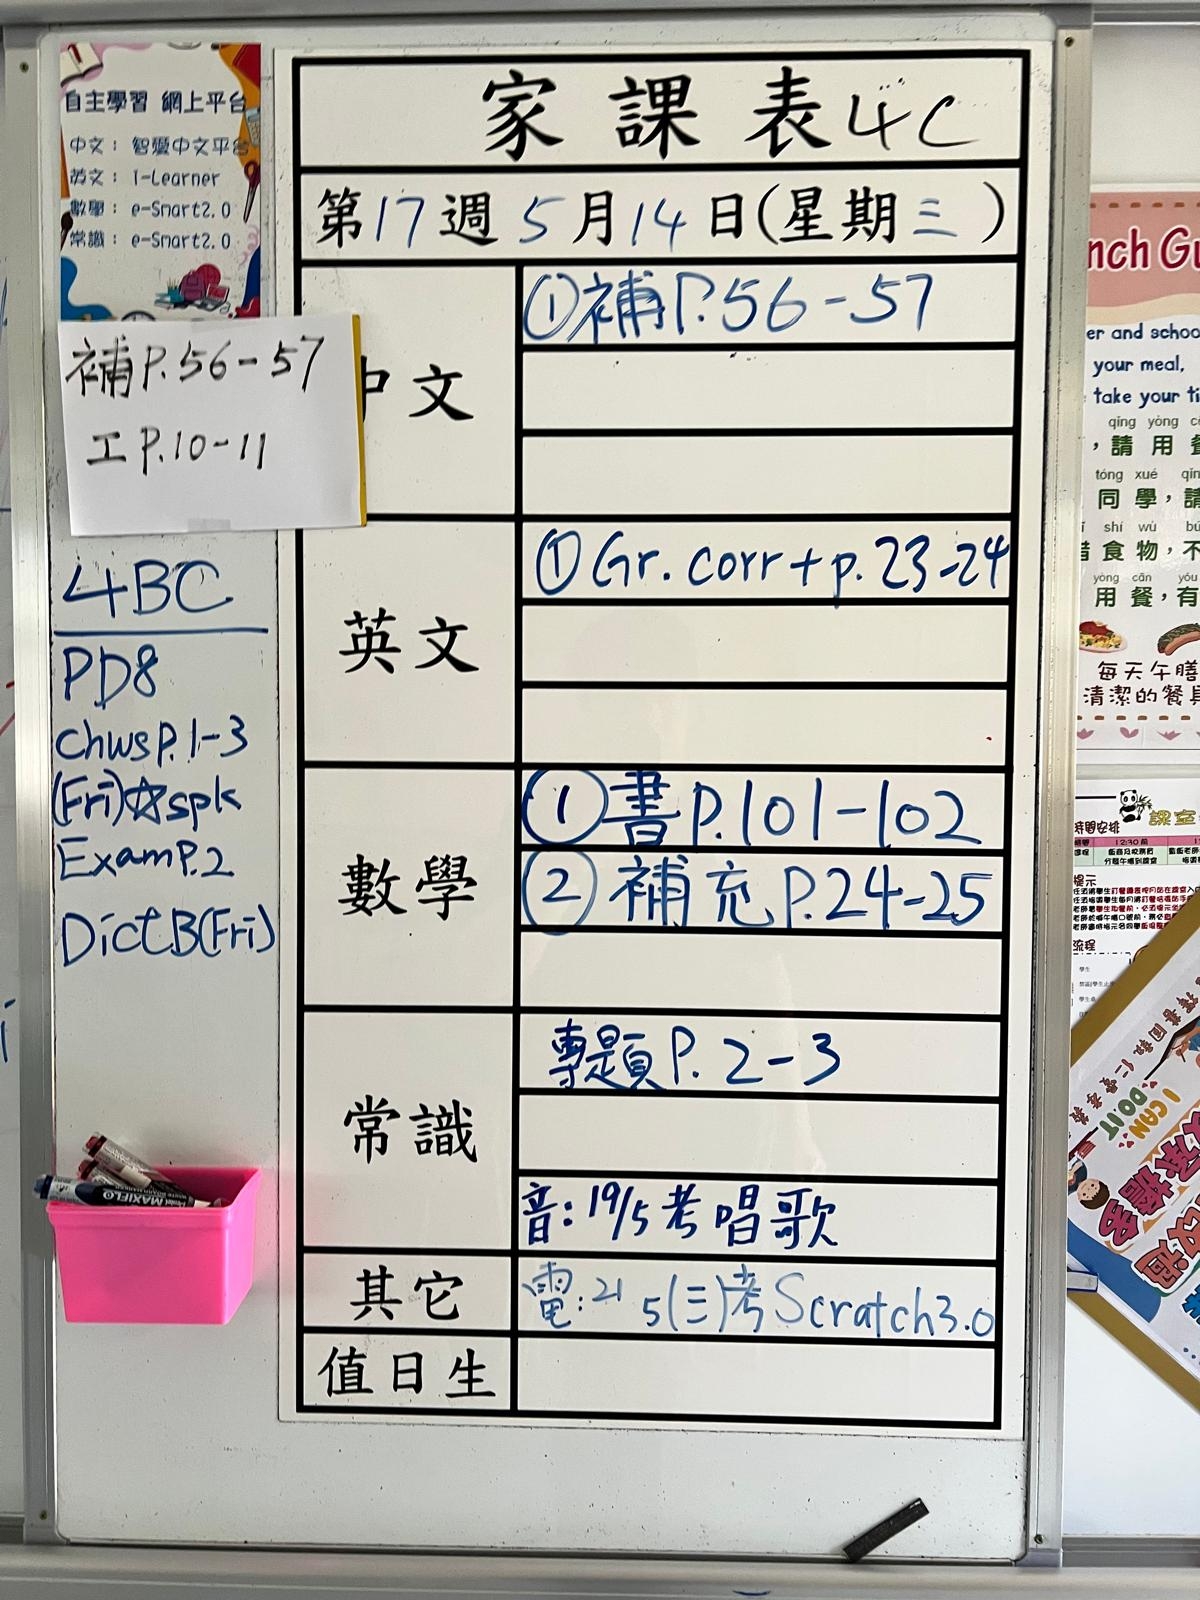 自主學習 網上平台
中文： 智愛中文平台
英文： i-Learner
數學： e-Smart2.0
常識： e-Smart2.0
補P.56-57
工P.10-11
4BC
PD8
Chws P.1-3
(Fri)☆spk
Exam P.2
Dict B(Fri)
家課表 4C
第17週5月14日(星期三)
中文
①補P.56-57
英文
①Gr. corr + p.23-24
數學
①書P.101-102
②補充P.24-25
常識
專題P.2-3
音：19/5考唱歌
其它
電：21 5(三)考Scratch3.0
值日生
nch Gu
er and schoo
your meal,
take your ti
qǐng yòng c
，請用餐
tóng xué qǐn
同學，請
shí wù bú
惜食物，不
yòng cān yǒu
用餐，有
每天午膳
清潔的餐具
時間安排
課室
12:30前
提示
流程
學生
I CAN
DO IT
承擔
MAXIFLO